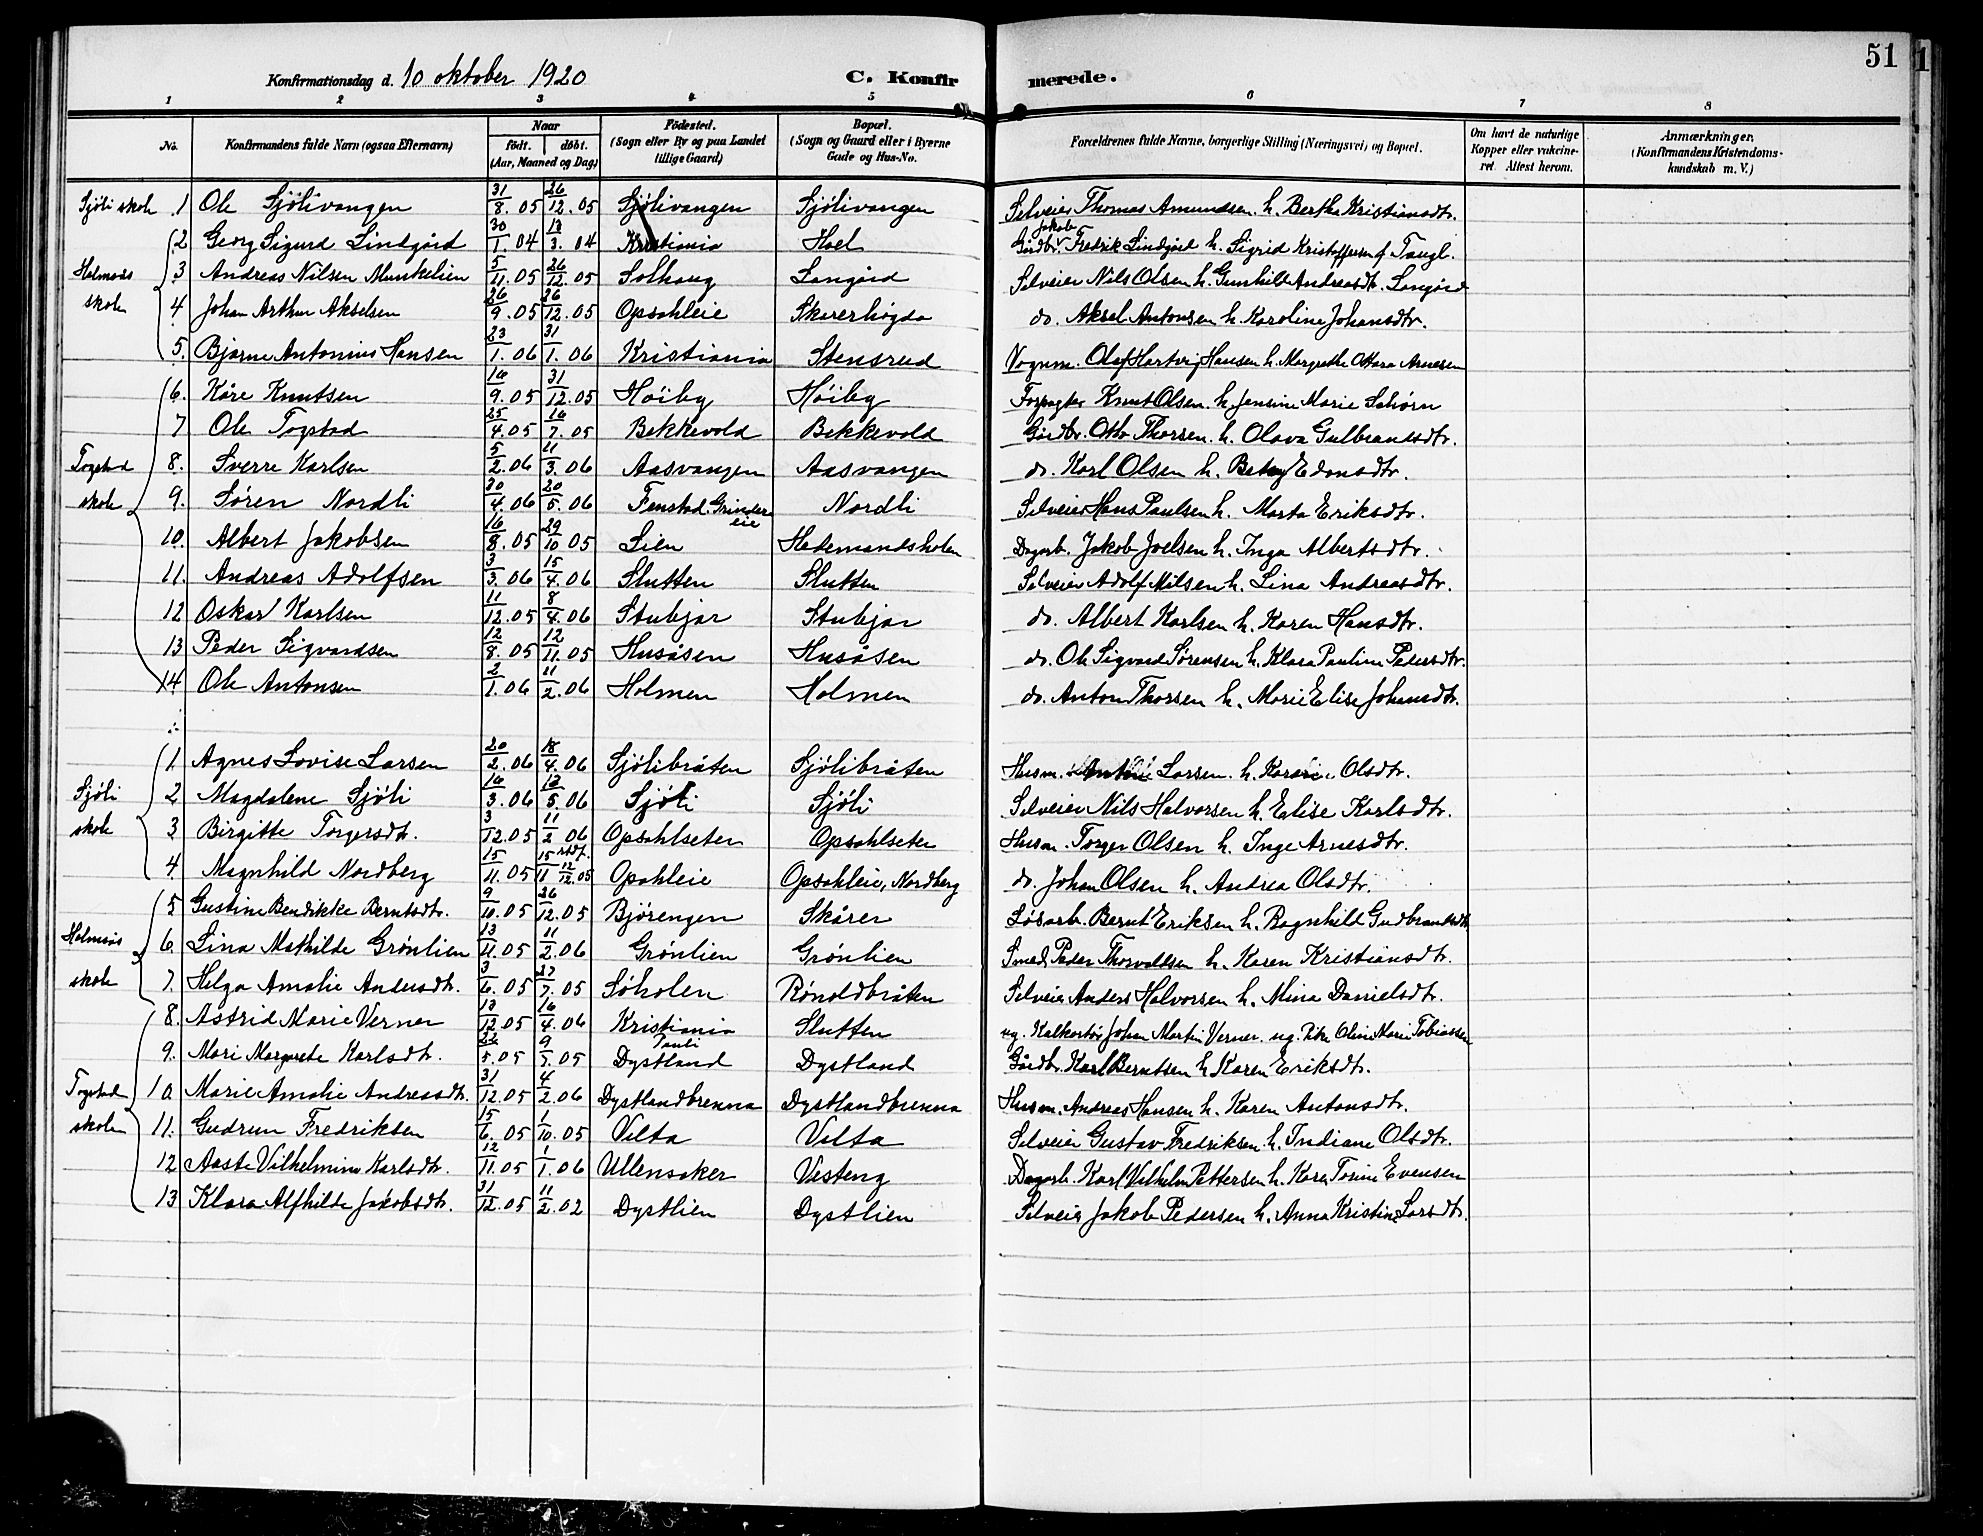 51
Konfirmationsdag d. 10 oktober 1920 C. Konfirmerede.
1 2 3 4 5 6 7 8
No. Konfirmandens fulde Navn (ogsaa Efternavn) Naar födt. döbt. (Aar, Maaned og Dag) Födested. (Sogn eller By og paa Landet tillige Gaard) Bopæl. (Sogn og Gaard eller i Byerne Gade og Hus-No. Forældrenes fulde Navne, borgerlige Stilling (Næringsvei) og Bopæl. Om havt de naturlige Kopper eller vakcineret. Attest herom. Anmærkninger. (Konfirmandens Kristendomskundskab m. V.)
Sjöli skole 1 Ole Sjölivangen 31/8.05 26/12.05 Sjölivangen Sjölivangen Selveier Thomas Amundsen h. Bertha Kristiansdtr.
Holmsås skole
2 Georg Sigurd Lindgård 30/1.04 13/3.04 Kristiania Hoel Gårdbr. Jakob Fredrik Lindgård h. Sigrid Kristoffersen f. Taugl.
3 Andreas Nilsen Munkelien 5/11.05 26/12.05 Solhaug Langård Selveier Nils Olsen h. Gunhild Andreasdtr. Langård
4 Johan Arthur Akselsen 26/9.05 26/12.05 Opsahleie Skarerhögda do. Aksel Antonsen h. Karoline Johansdtr.
5. Bjarne Antonius Hansen 23/1.06 31/1.06 Kristiania Stensrud Vognm. Olaf Hartvig Hansen h. Margrethe Ottara Arnesen
Togstad skole
6. Kåre Knutsen 16/9.05 31/12.05 Höiby Höiby Forpagter Knut Olsen h. Jensine Marie Schörn
7 Ole Togstad 25/4.05 16/7.05 Bekkevold Bekkevold Gårdbr. Otto Thorsen. h. Olava Gulbrandsdtr.
8. Sverre Karlsen 5/2.06 11/3.06 Aasvangen Aasvangen do. Karl Olsen h. Betsy Edansdtr.
9. Sören Nordli 30/4.06 20/5.06 Fenstad. Grindereie Nordli Selveier Hans Paulsen h. Marta Eriksdtr.
10. Albert Jakobsen 16/8.05 29/10 05 Lien Hademandsholen Dagarb. Jakob Joelsen h. Inga Albertsdtr.
11. Andreas Adolfsen 3/3.06 15/4.06 Slutten Slutten Selveier Adolf Nilsen h. Lina Andreasdtr.
12 Oskar Karlsen 11/12.05 8/4.06 Stubjar Stubjar do. Albert Karlsen h. Karen Hansdtr.
13 Peder Sigvardsen 12/8.05 12/11.05 Husåsen Husåsen do. Ole Sigvard Sörensen h. Klara Pauline Pedersdtr.
14 Ole Antonsen 2/1.06 11/2.06 Holmen Holmen do. Anton Thorsen h. Marie Elise Johansdtr.
Sjöli skole
1 Agnes Lovise Larsen 20/2.06 18/4.06 Sjölibråten Sjölibråten Husm. Larsen. h. Olsdtr.
2 Magdalene Sjöli 16/3.06 13/5.06 Sjöli Sjöli Selveier Nils Halvorsen h. Elise Karlsdtr.
3 Birgitte Torgersdtr. 3/12.05 11/2 06 Opsahlseter Opsahlseter Husm. Torger Olsen h. Inge Arnesdtr.
4 Magnhild Nordberg 15/11.05 15/11 stdf. 12/12.05 Opahleie Opsahleie, Nordberg do. Johan Olsen h. Andrea Olsdtr.
Holmsås skole
5 Gustine Bendikke Berntsdtr. 9/10.05 26/12.05 Björengen Skårer Lösarb. Bernt Eriksen h. Ragnhild Gudbrandsdtr
6. Lina Mathilde Grönlien 13/11.05 11/2.06 Grönlien Grönlien Smed Peder Thorvaldsen h. Karen Kristiansdtr.
7. Helga Amalie Andersdtr. 3/6.05 27/7.05 Söholen Rönoldbråten Selveier Anders Halvorsen h. Mina Danielsdtr.
Togstad skole
8. Astrid Marie Verner 13/12.05 16/4.06 Kristiania Pauli Slutten ug. Johan Martin Verner. ug. Pike Oline Marie Tobiassen
9. Mari Margrete Karlsdtr. 22/5.05 9/7.05 Dystland Dystland Gårdbr. Karl Berntsen h Karen Eriksdtr.
10 Marie Amalie Andreasdtr. 31/12.05 4/2.06 Dystlandbrenna Dystlandbrenna Husm. Andreas Hansen h. Karen Antonsdtr.
11. Gudrun Fredriksen 15/6.05 1/10.05 Vilta Volta Selveier Gustav Fredriksen. h. Indiane Olsdtr.
12 Aaste Vilhelmine Karlsdtr. 12/11.05 1/1.06 Ullensaker Vesteng Dagarb. Karl Vilhelm Pettersen h. Karen Torine Evensen
13 Klara Alfhilde Jakobsdtr. 31/12.05 11/2.02 Dystlien Dystlien Selveier Jakob Pedersen h. Anna Kristine Larsdtr.